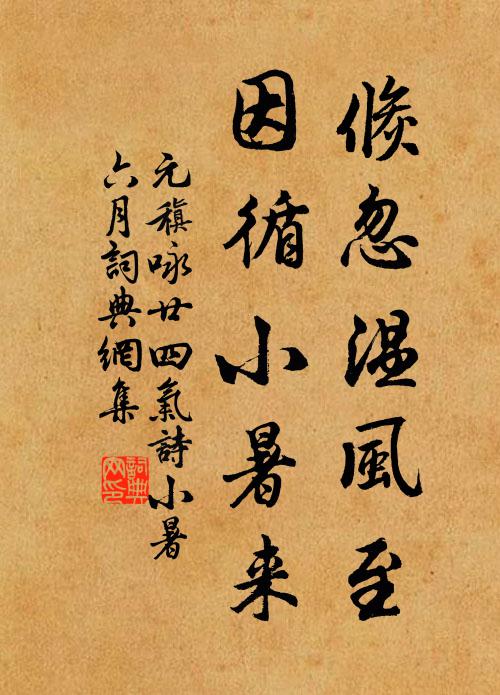 倏忽温風至
因循小暑来
元稹咏廿四氣詩小暑
六月詞典網集
詞典
网印